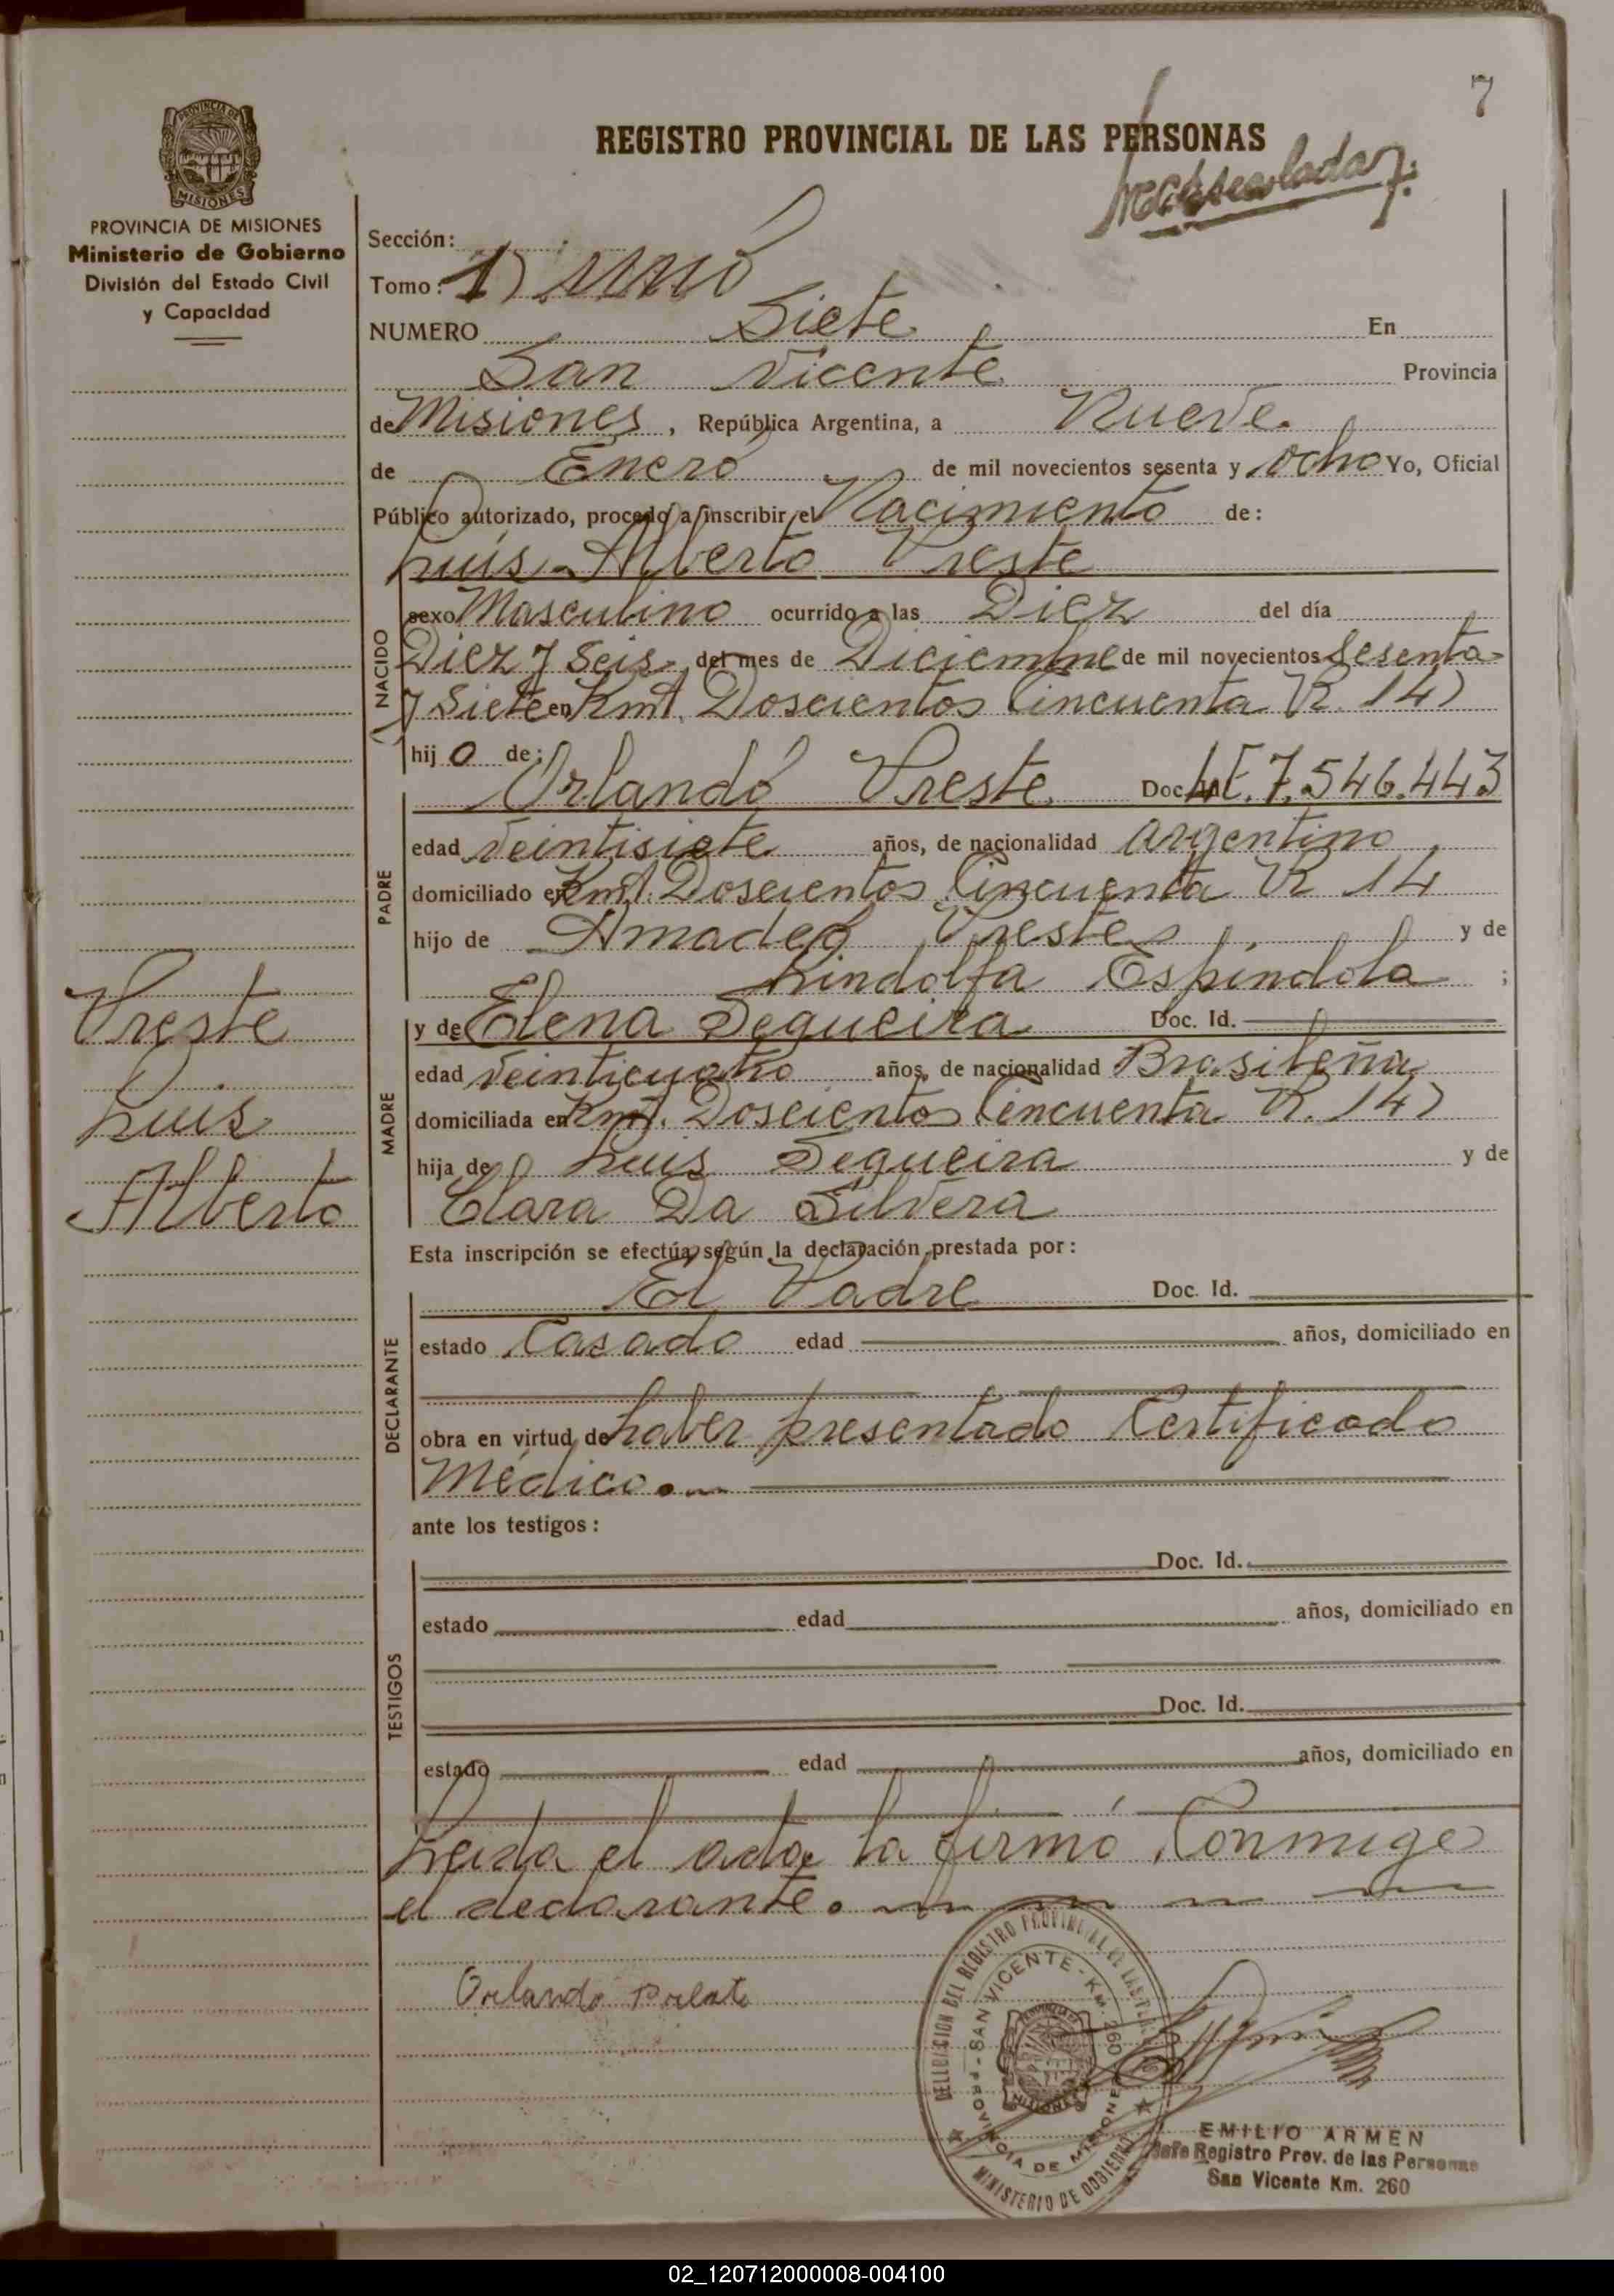 7
REGISTRO PROVINCIAL DE LAS PERSONAS
PROVINCIA DE MISIONES
MISIONES
PROVINCIA DE MISIONES
Ministerio de Gobierno
División del Estado Civil
y Capacidad
Sección:
Tomo: 1) Uno
NUMERO Siete En
San Vicente Provincia
de Misiones, República Argentina, a Nueve.
de Enero de mil novecientos sesenta y ocho Yo, Oficial
Público autorizado, procedo a inscribir el Nacimiento de:
Luis Alberto Preste
NACIDO
sexo Masculino ocurrido a las Diez del día
Diez y Seis del mes de Diciembre de mil novecientos Sesenta
y Siete en Kmt. Doscientos Cincuenta R. 14)
hijo de:
PADRE
Orlando Preste Doc. LE. 7.546.443
edad Veintisiete años, de nacionalidad argentino
domiciliado en Kmt. Doscientos Cincuenta R 14
hijo de Amadeo Preste y de
Lindolfa Espindola ;
MADRE
y de Elena Sequeira Doc. Id.
edad Veinticuatro años, de nacionalidad Brasileña
domiciliada en Kmt. Doscientos Cincuenta R. 14)
hija de Luis Sequeira y de
Clara Da Silvera
Preste
Luis
Alberto
Esta inscripción se efectúa según la declaración prestada por:
DECLARANTE
El Padre Doc. Id.
estado Casado edad años, domiciliado en
obra en virtud de haber presentado Certificado
Médico.
ante los testigos:
TESTIGOS
Doc. Id.
estado edad años, domiciliado en
Doc. Id.
estado edad años, domiciliado en
Leida el acta la firmó Conmigo
el declarante.
Orlando
SAN VICENTE - KM. 260
PROVINCIA DE MISIONES
MINISTERIO DE GOBIERNO
EMILIO ARMEN
Jefe Registro Prov. de las Personas
San Vicente Km. 260
02_120712000008-004100